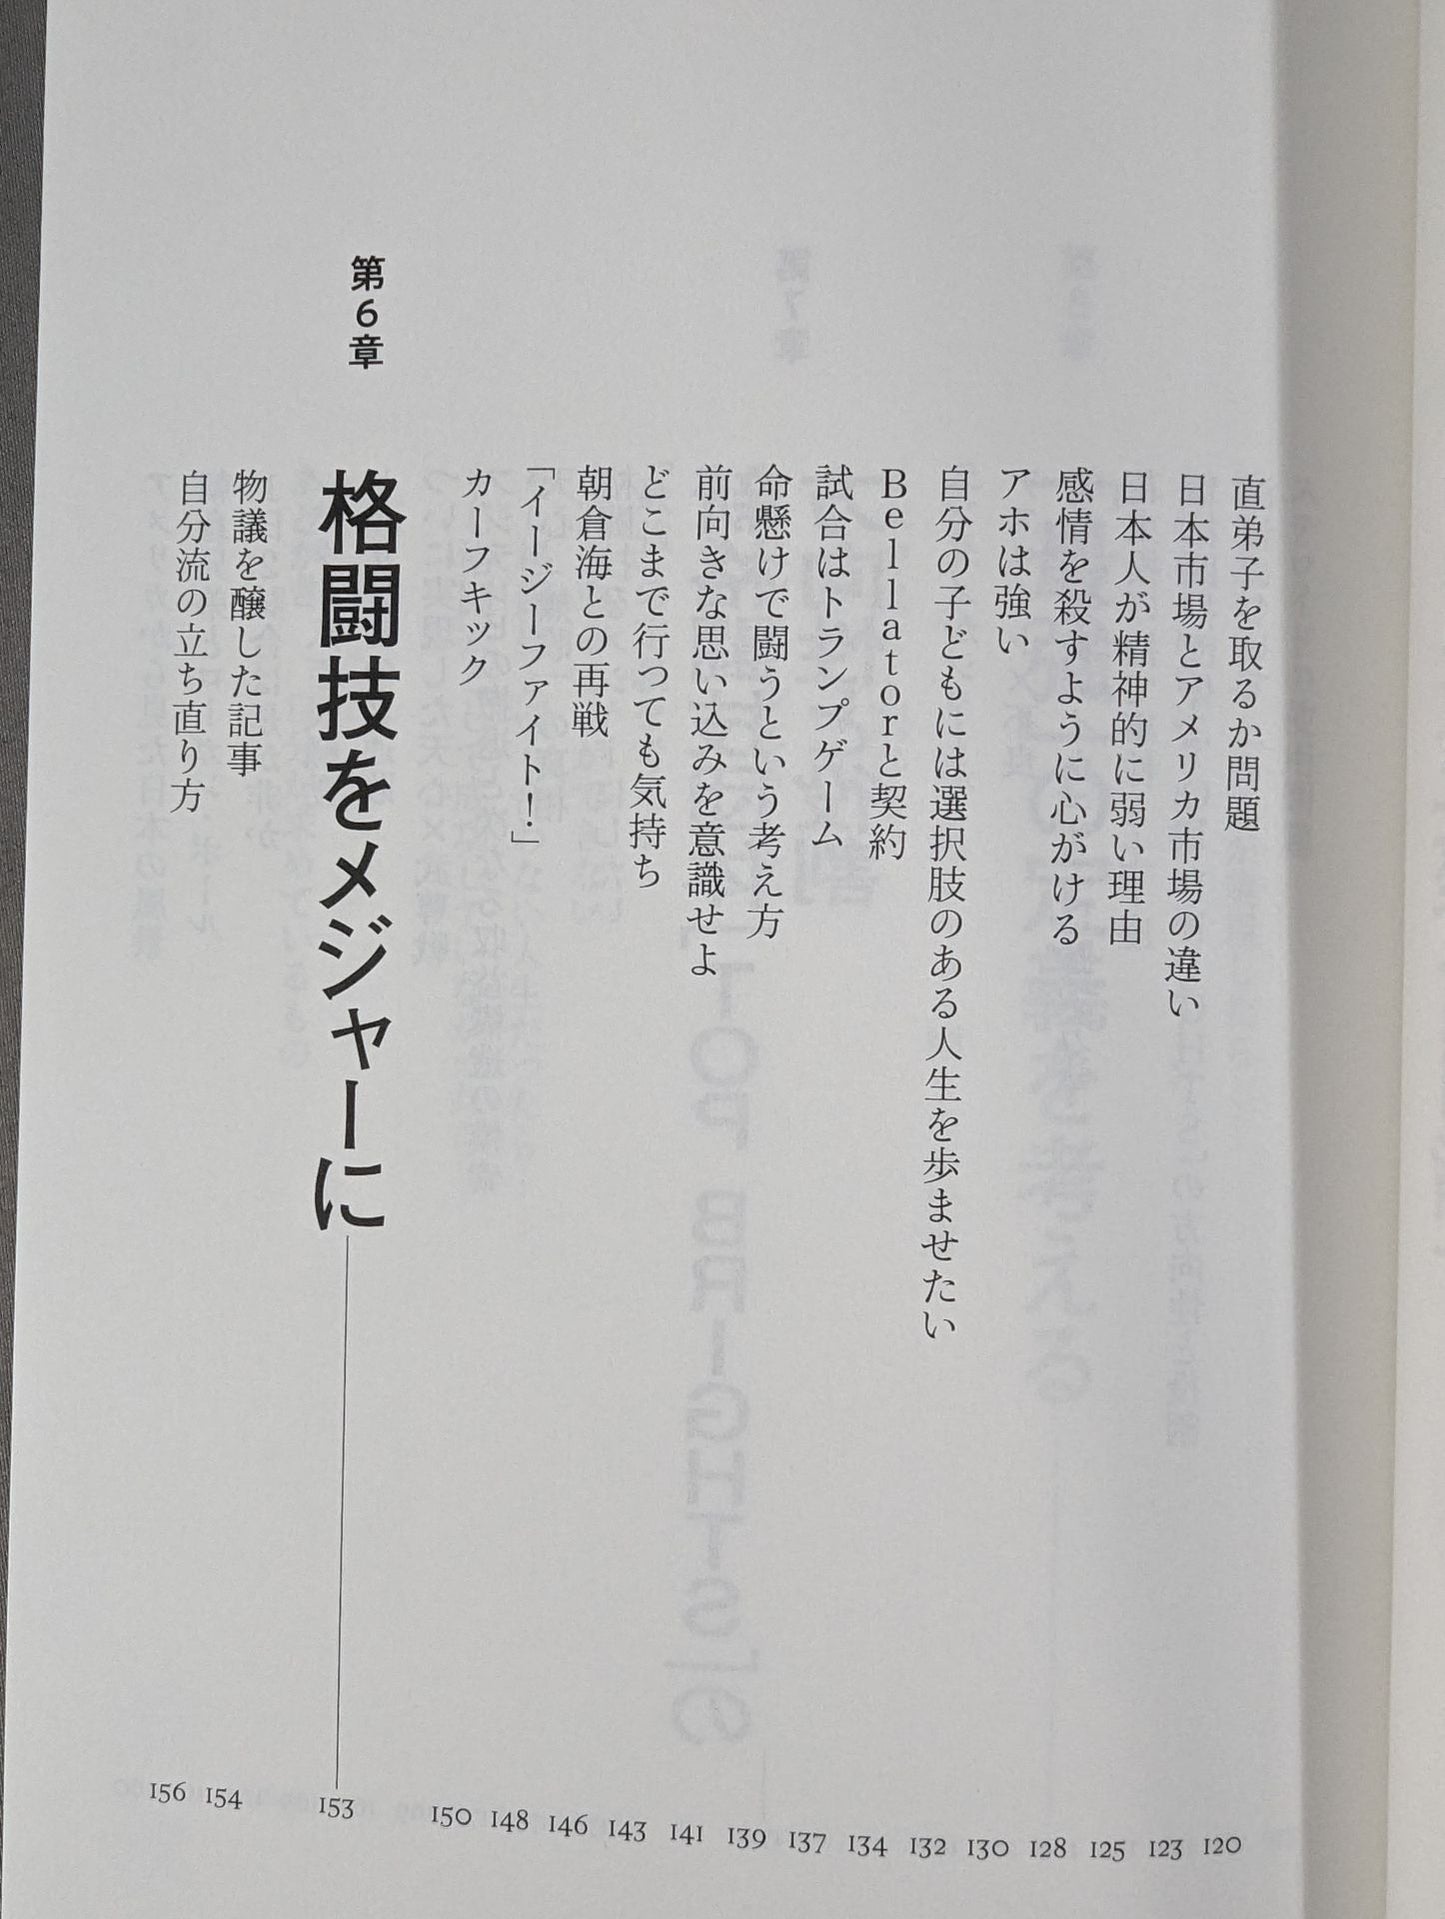 直弟子を取るか問題 120
日本市場とアメリカ市場の違い 123
日本人が精神的に弱い理由 125
感情を殺すように心がける 128
アホは強い 130
自分の子どもには選択肢のある人生を歩ませたい 132
Bellatorと契約 134
試合はトランプゲーム 137
命懸けで闘うという考え方 139
前向きな思い込みを意識せよ 141
どこまで行っても気持ち 143
朝倉海との再戦 146
「イージーファイト!」 148
カーフキック 150
第6章 格闘技をメジャーに 153
物議を醸した記事 154
自分流の立ち直り方 156